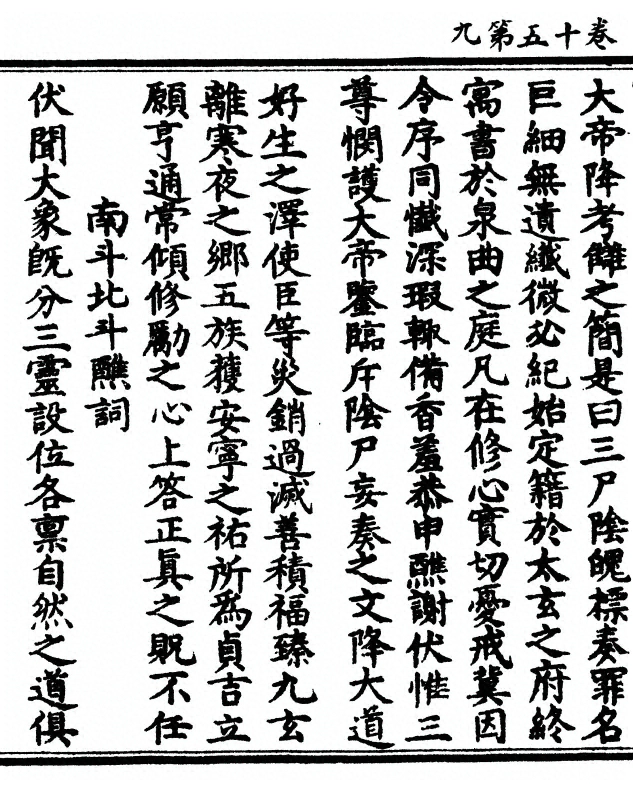 卷十五第九
大帝降考讎之簡是曰三尸陰魄標奏罪名
巨細無遺纖微必紀始定籍於太玄之府終
寓書於泉曲之庭凡在修心實切憂戒冀因
令序同懺深瑕輙備香羞恭申醮謝伏惟三
尊憫護大帝鑒臨斥陰尸妄奏之文降大道
好生之澤使臣等災銷過滅善積福臻九玄
離寒夜之鄉五族獲安寧之祐所為貞吉立
願亨通常傾修勵之心上答正真之貺不任
南斗北斗醮詞
伏聞大象旣分三靈設位各禀自然之道俱